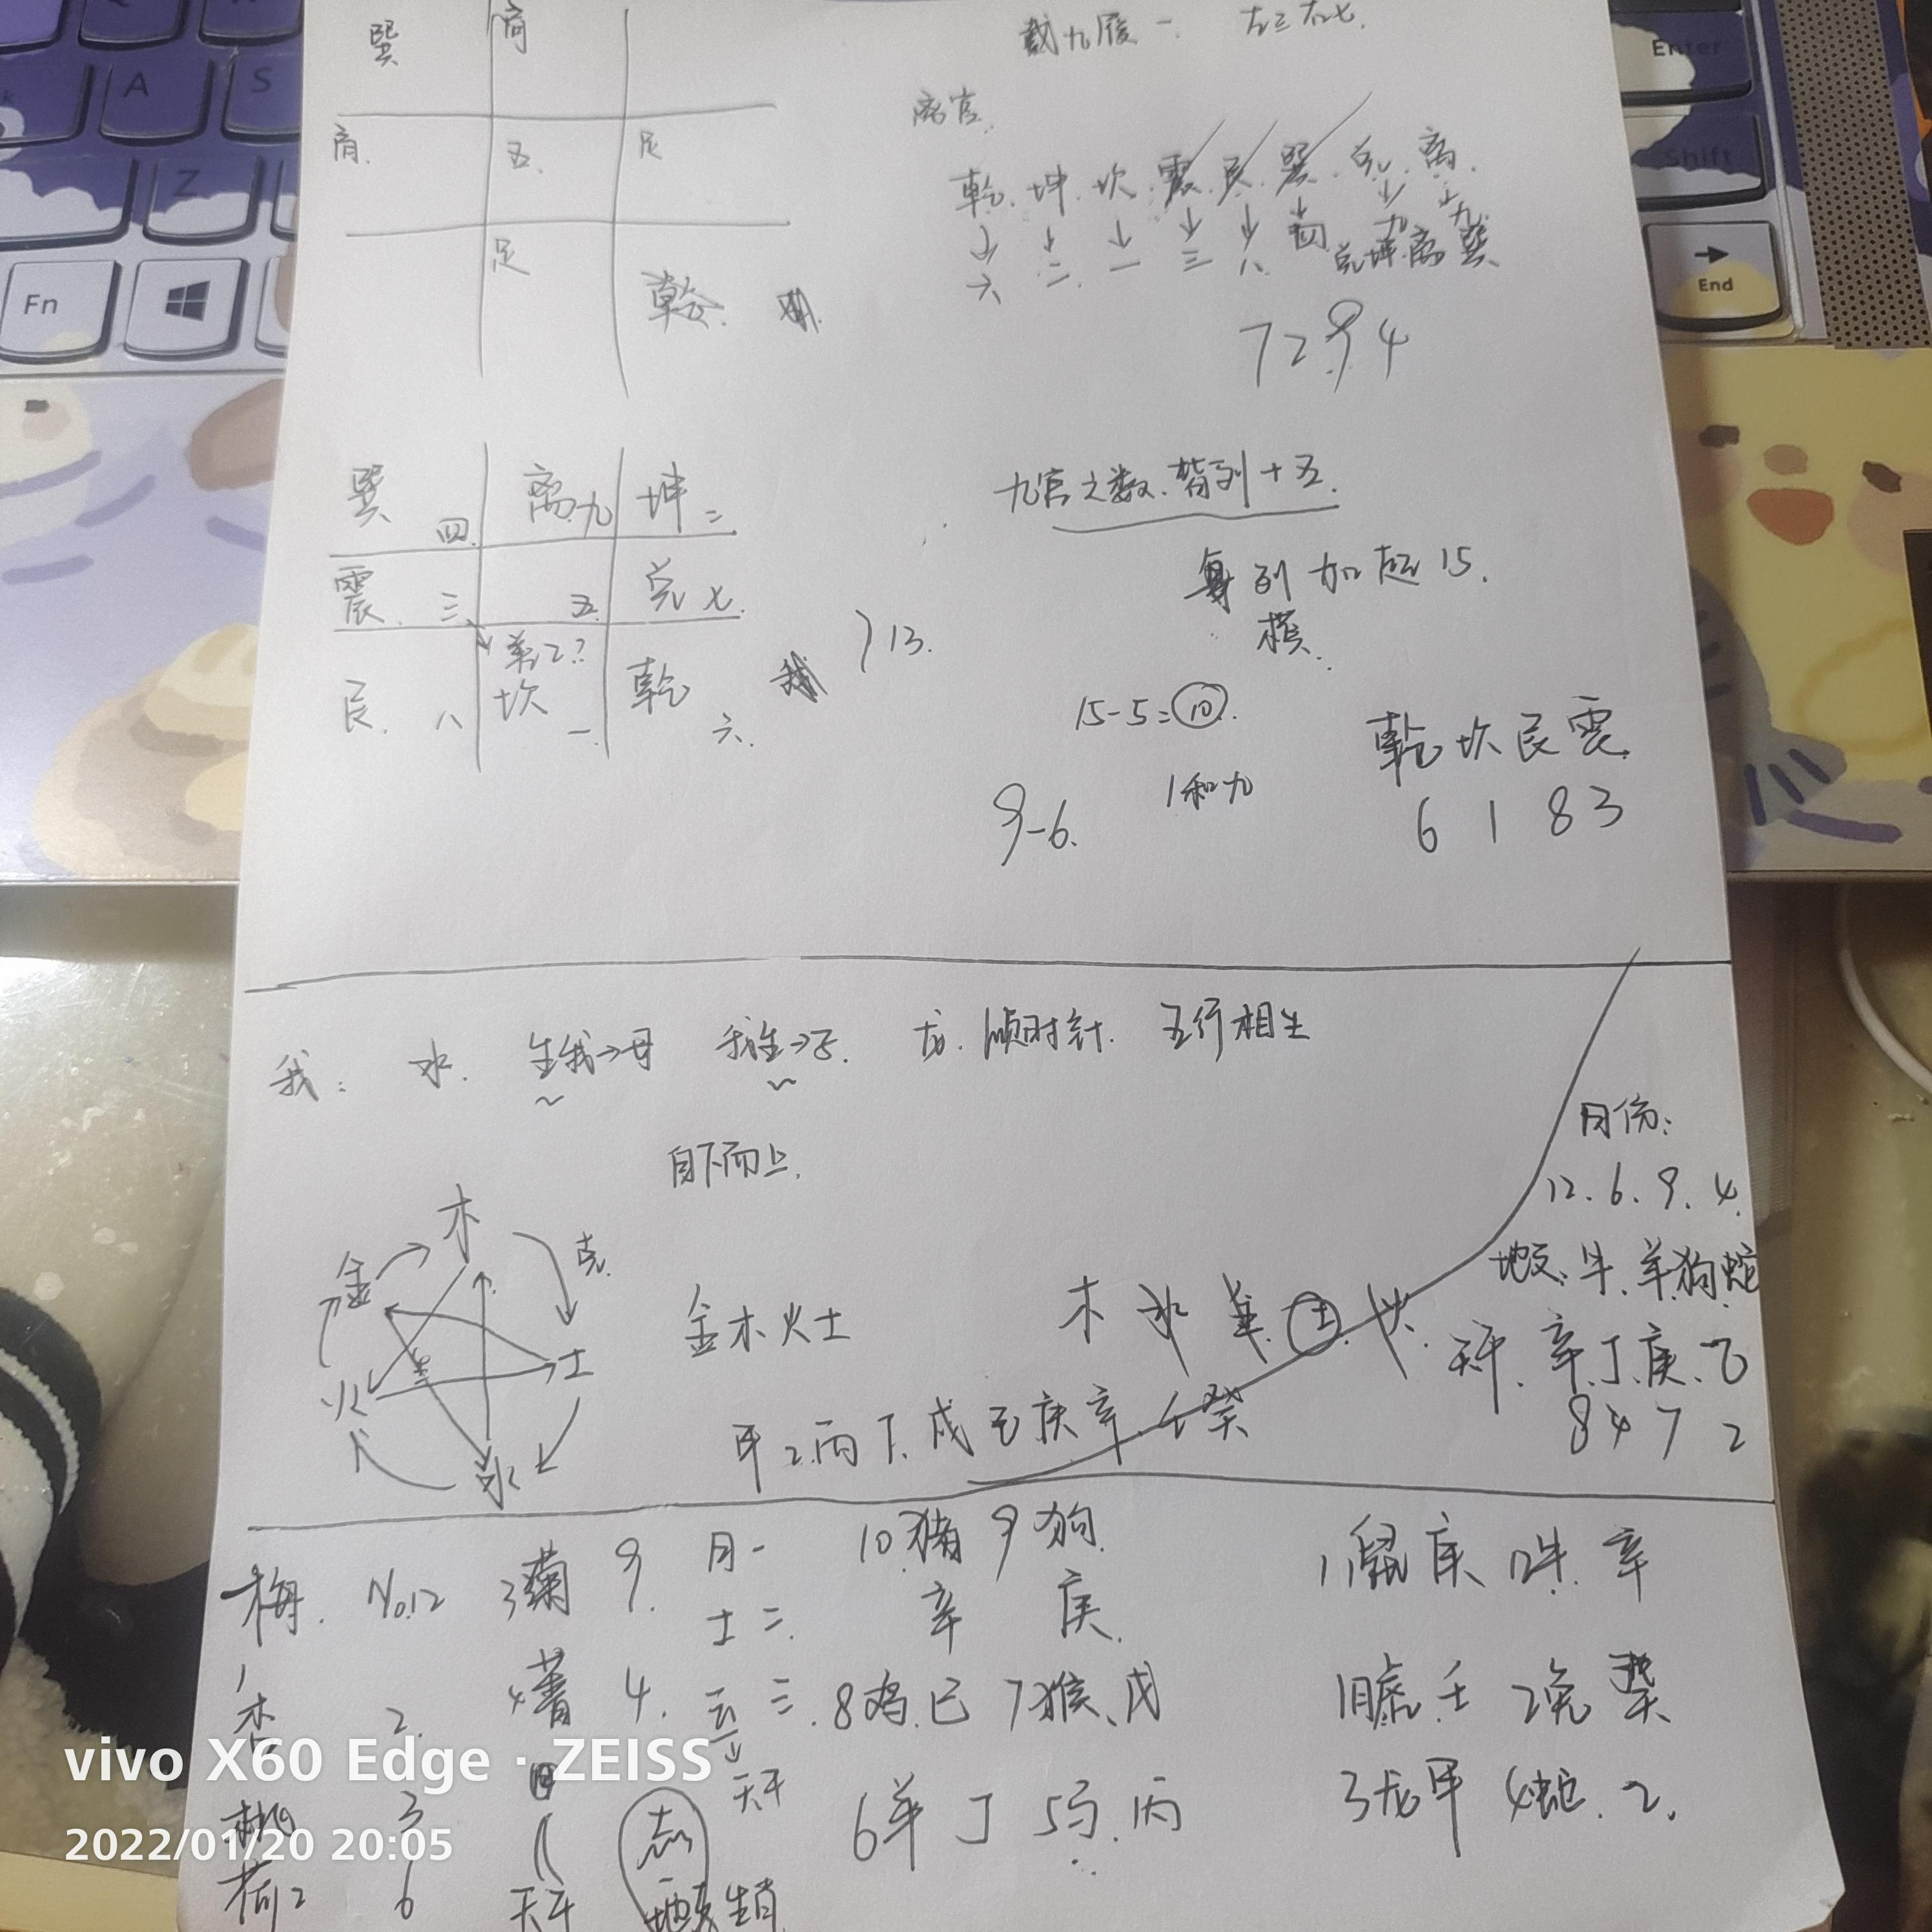 戴九履一. 左三右七.
巽
离宫.
五.
乾.坤.坎.震.艮.巽.兑.离.
六 二. 一 三 八. 四 九 九
兑坤离巽
乾.
7 2 9 4
巽 四. 离九 坤二
震. 三. 五. 兑七.
艮. 八 坎 一. 乾 六.
13.
九宫之数.皆列十五.
每列加起15.
横.
15-5=10.
1和九
9-6.
乾坎艮震
6 1 8 3
我: 水. 生我→母 我生→子. 龙.顺时针. 五行相生
自下而上.
月份:
12.6.9.4.
地支:牛.羊狗蛇
天干.辛.丁.庚.乙
8 4 7 2
木
金
克.
土
火
水
金木火土
木 水 土 火.
甲乙.丙丁.戊己庚辛.壬癸
梅. No.12 3菊 9. 月一 10.猪 9狗. 11鼠庚 12牛.辛
土二. 辛 庚.
杏 2. 4 4. 三. 8鸡.己 7猴、戊 1虎.壬 2兔癸
桃 3 天干 6羊丁 5马.丙 3龙甲 4蛇.乙.
荷 6 天干 地支生肖
Fn
A
S
Z
Enter
Shift
End
vivo X60 Edge · ZEISS
2022/01/20 20:05